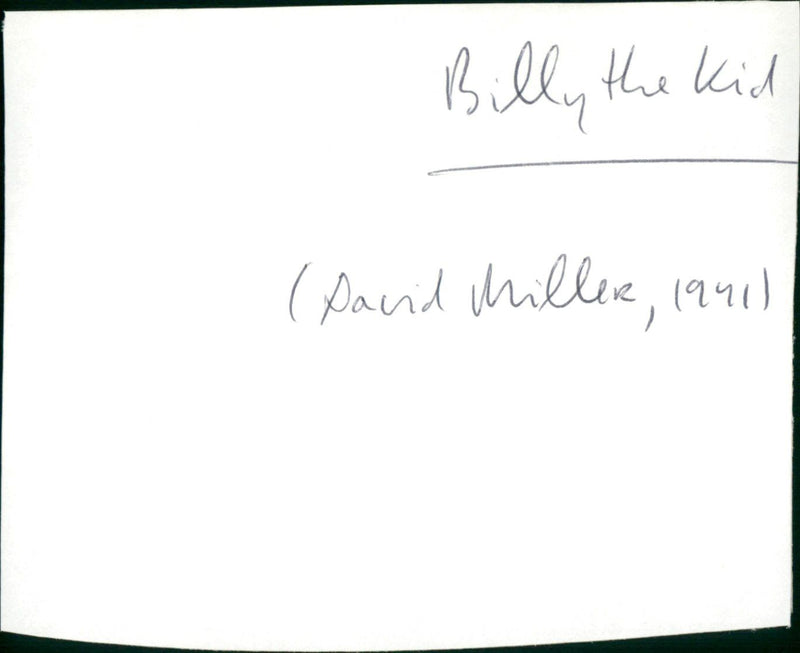 Billy the Kid
(David Miller, 1941)